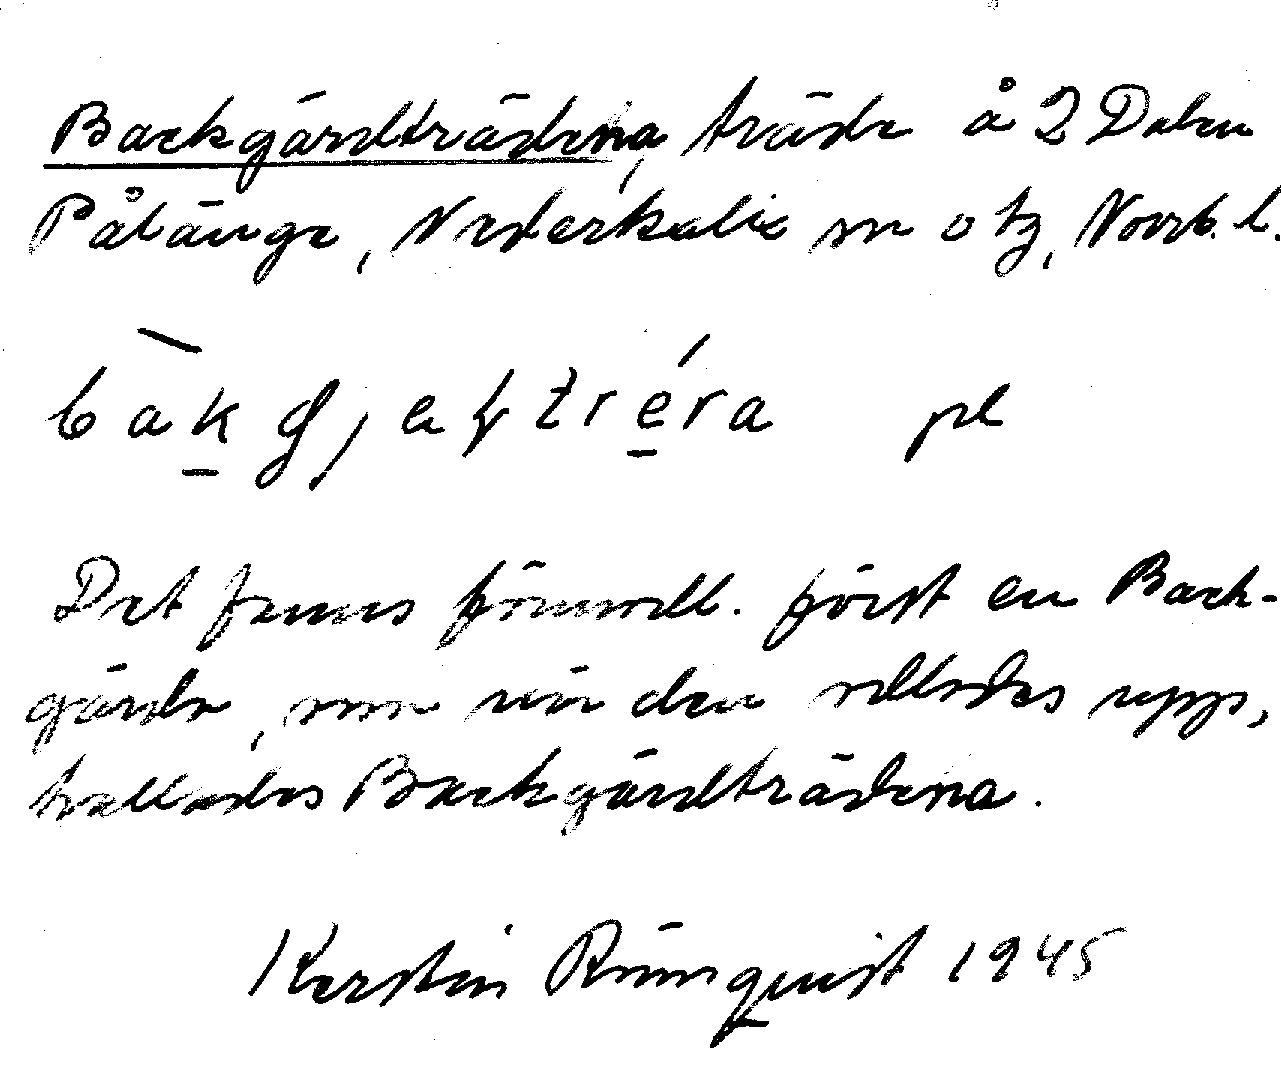 Backgärdträdena, träde å 2 Dalen
Pålänge, Nederkalix sn o tg, Norrb. l.
bàkgjeftréra pl
Det fanns förmodl. först en Back-
gärda, som när den odlades upp,
kallades Backgärdträdena.
Kerstin Rönnquist 1945